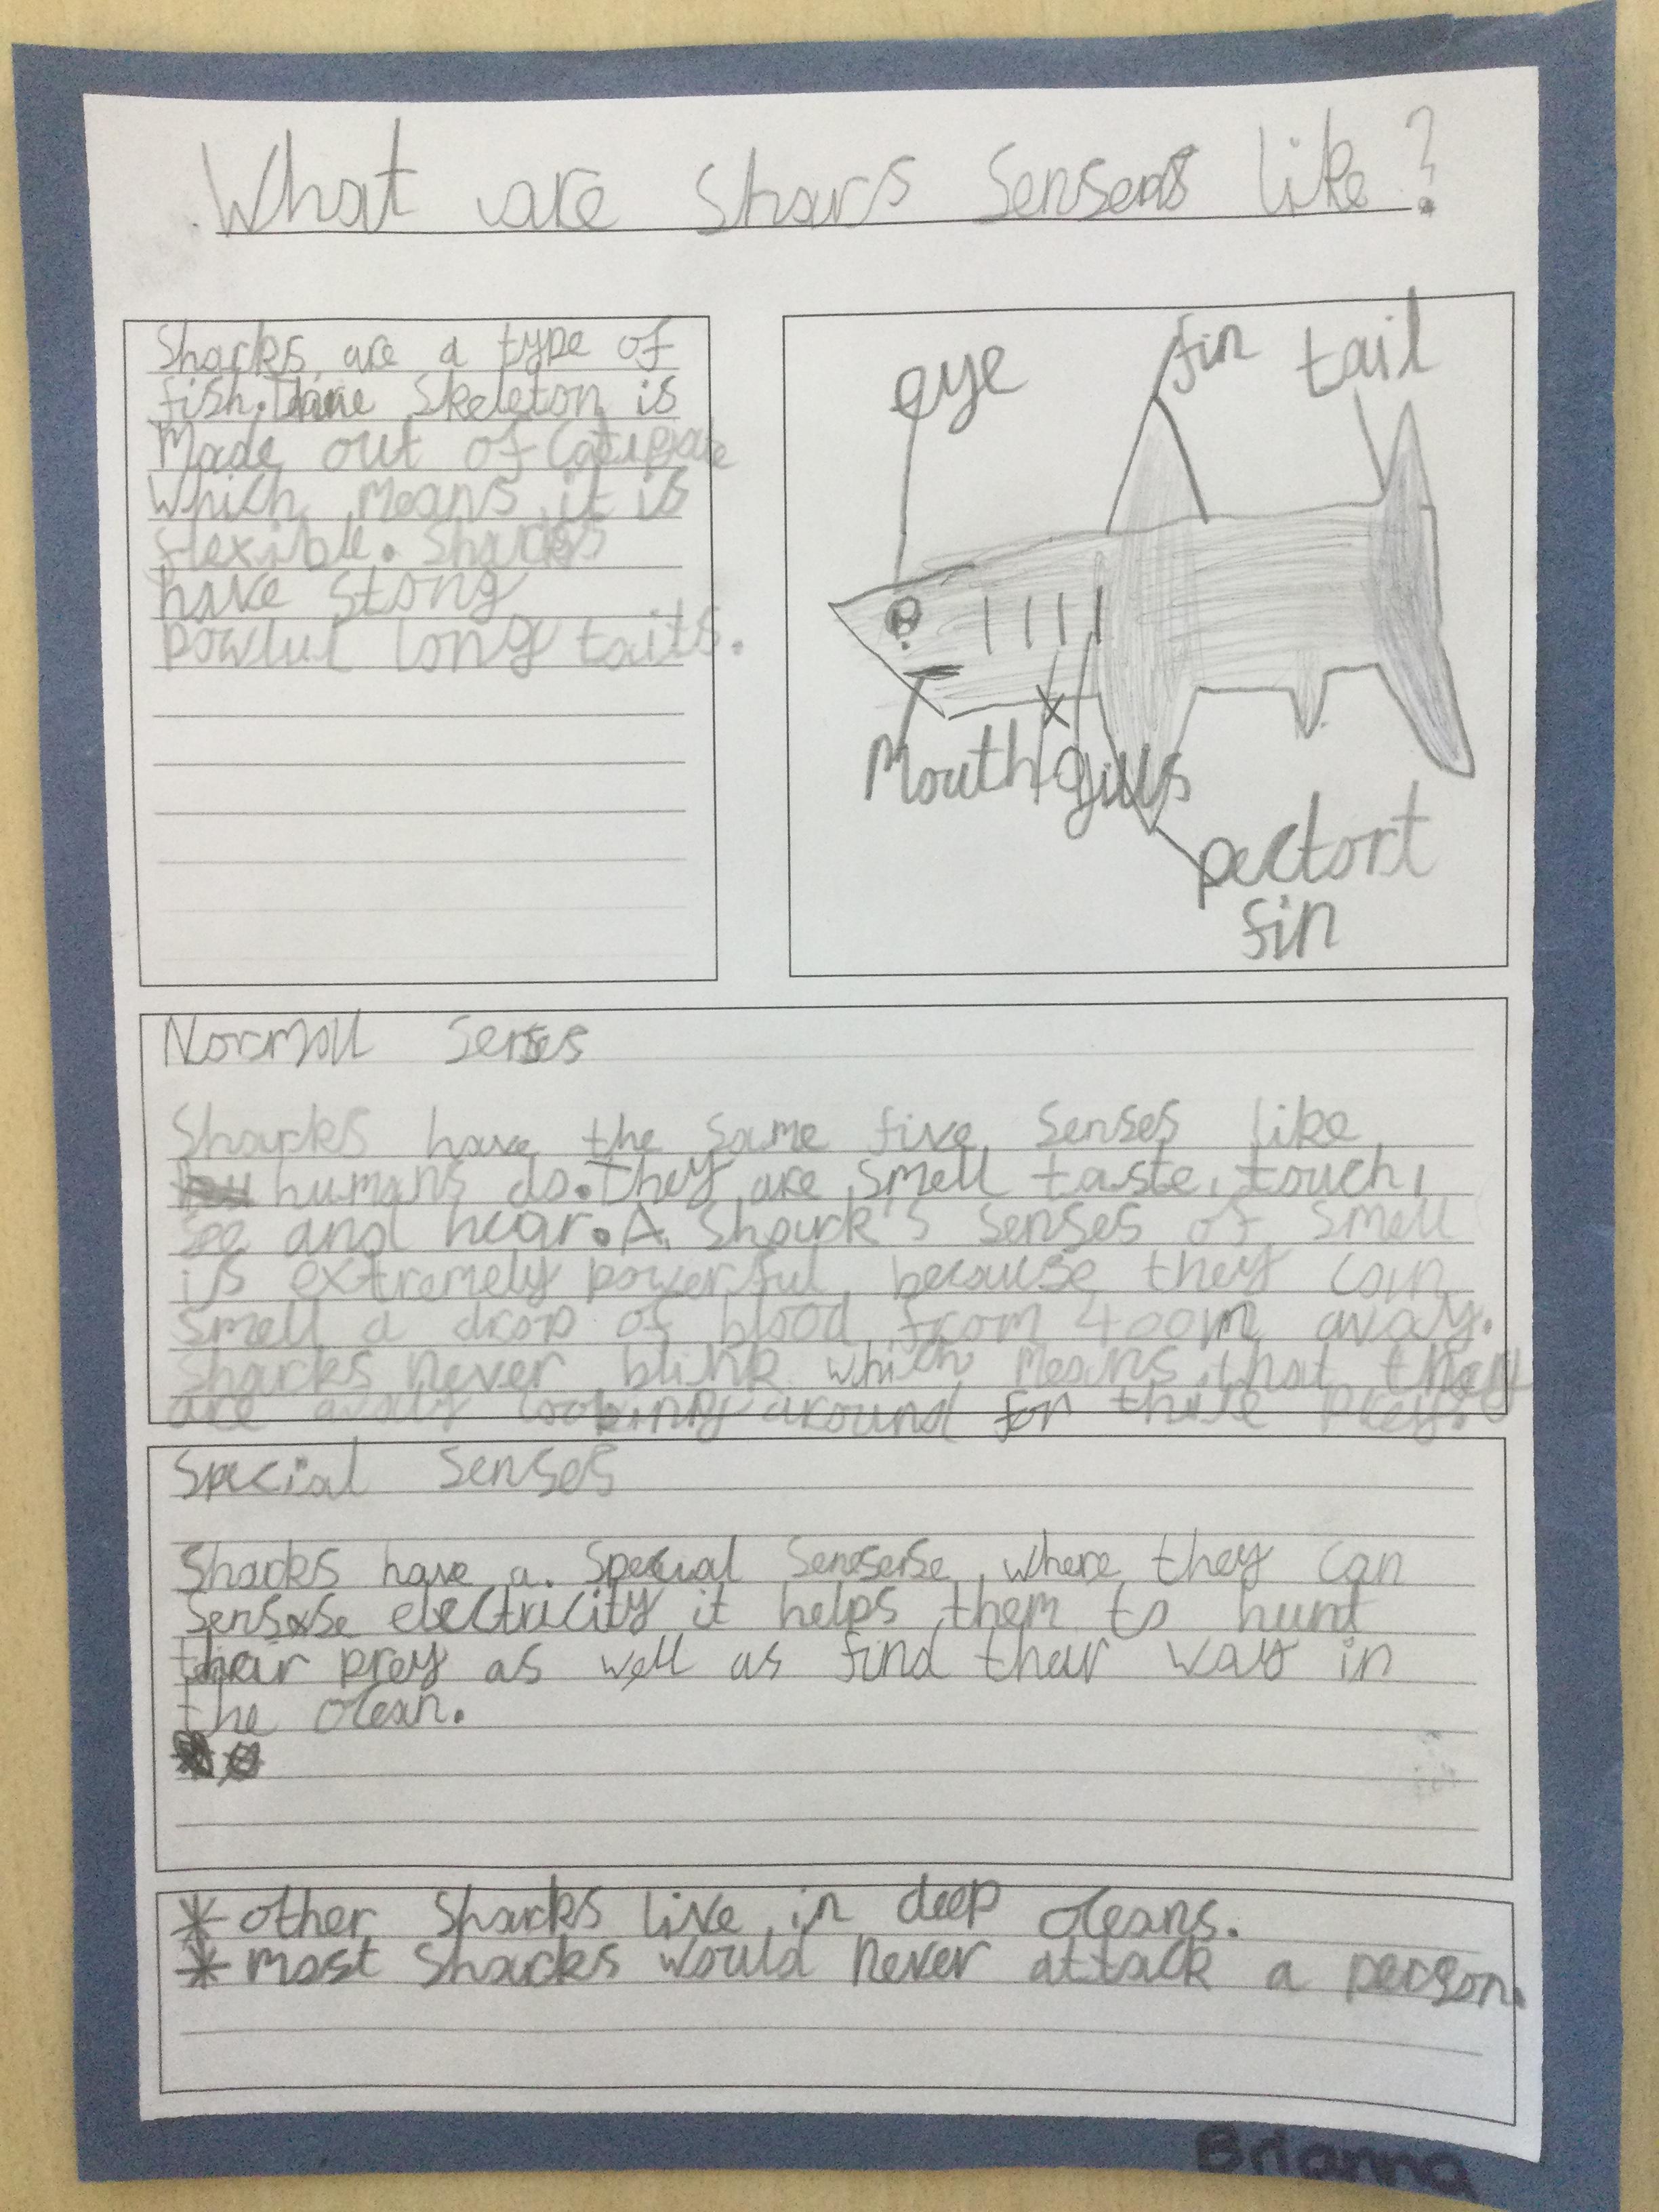 What are Shars Senses like?
Sharks are a type of
fish. Thare Skeleton is
Made out of
Which means it is
flexible. Sharks
have Stong
powful long tails.
eye
fin
tail
Mouth
gills
pectort
fin
Normall Senses
Sharks have the same five Senses like
humans do. They are smell taste, touch,
see and hear. A Shark's Senses of smell
is extremely powerful because they can
smell a drop of blood from 400m away.
Sharks never blink which means that they
are looking around for thire prey.
Special Senses
Sharks have a special where they can
electricity it helps them to hunt
thair prey as well as find thair way in
the ocean.
* other Sharks live in deep oceans.
* most Sharks would never attack a person.
Brianna